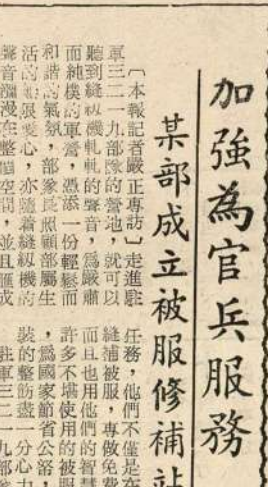 加強為官兵服務
某部成立被服修補站
〔本報記者嚴正專訪〕走進駐
軍三二一九部隊的營地，就可以
聽到縫紉機軋軋的聲音，為嚴肅
而純樸的軍營，憑添一份輕鬆而
和諧的氣氛，部隊長照顧部屬生
活的無限愛心，亦隨着縫紉機的
聲音瀰漫在整個空間，並且匯成
任務，他們不僅是在
縫補被服，專做免費
而且也用他們的智慧
許多不堪使用的被服
，為國家節省公帑，
裝的整飭盡一分心力
駐軍三二一九部隊